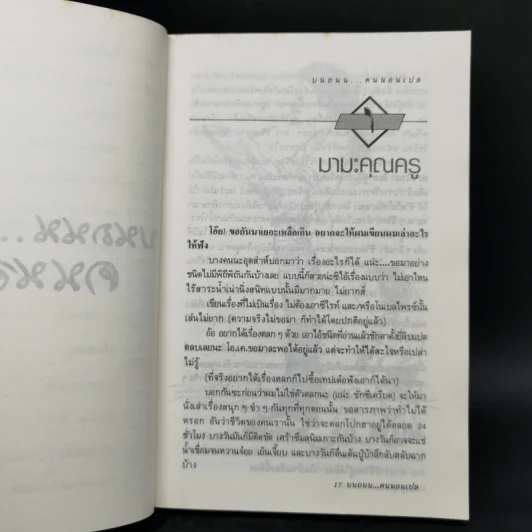 บนถนน...คนนอนเปล
๑
มามะคุณครู
โอ๊ย! ขอกันมาเยอะเหลือเกิน อยากจะให้ผมเขียนผมเล่าอะไร
ให้ฟัง
บางคนนะอุตส่าห์บอกมาว่า เรื่องอะไรก็ได้ แน่ะ....ขอมาอย่าง
ชนิดไม่มีพิธีพิรันกันบ้างเลย แบบนี้ก็สวยน่ะซิได้เรื่องแบบว่า ไม่เอาไหน
ไร้สาระน้ำเน่านิ่งสนิทแบบนั้นมีมากมาย ไม่ยากส์
เขียนเรื่องที่ไม่เป็นเรื่อง ไม่ต้องเอาซีไรท์ และ/หรือโนเบลไพรซ์นั้น
เล่นไม่ยาก (ความจริงไม่ขอมา ก็ทำได้โดยปกติอยู่แล้ว)
อ้อ อยากได้เรื่องตลกๆ ด้วย เอาไอ้ชนิดที่อ่านแล้วชักดาดิ้นสิบแปด
ตลบเลยนะ โอ.เค.ขอมาละพอได้อยู่แล้ว แต่จะทำให้ได้สะใจหรือเปล่า
ไม่รู้
(ที่จริงอยากได้เรื่องตลกก็ไปซื้อเทปเด๋อฟังเอาก็ได้นา)
บอกกันซะก่อนว่าผมไม่ใช่ตัวตลกนะ (แน่ะ ชักซีเครียด) จะให้มา
นั่งเล่าเรื่องสนุก ๆ ขำ ๆ กันทุกที่ทุกตอนนั้น ขอสารภาพว่าทำไม่ได้
หรอก อันว่าชีวิตของคนเรานั้น ใช่ว่าจะตลกโปกฮาอยู่ได้ตลอด 24
ชั่วโมง บางวันมันก็มีติดขัด เศร้าซึมสนิมเกาะกันบ้าง บางวันก็อาจจะแช่
น้ำเชื่อมจนหวานจ๋อย เย็นเจี๊ยบ และบางวันก็ตื่นเต้นบู๊บ้าลึกลับสลับฉาก
บ้าง
17 บนถนน...คนนอนเปล